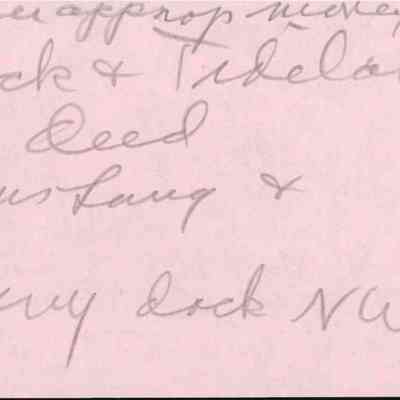 approp
ck & Tidela
Deed
ustang &
dock NW